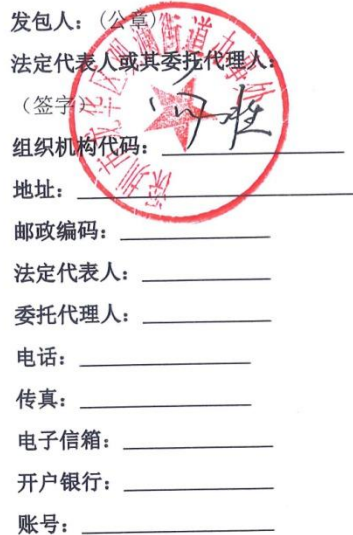 发包人：（公章）
法定代表人或其委托代理人：
（签字）
组织机构代码：
地址：
邮政编码：
法定代表人：
委托代理人：
电话：
传真：
电子信箱：
开户银行：
账号：
深圳市龙华区观湖街道办事处